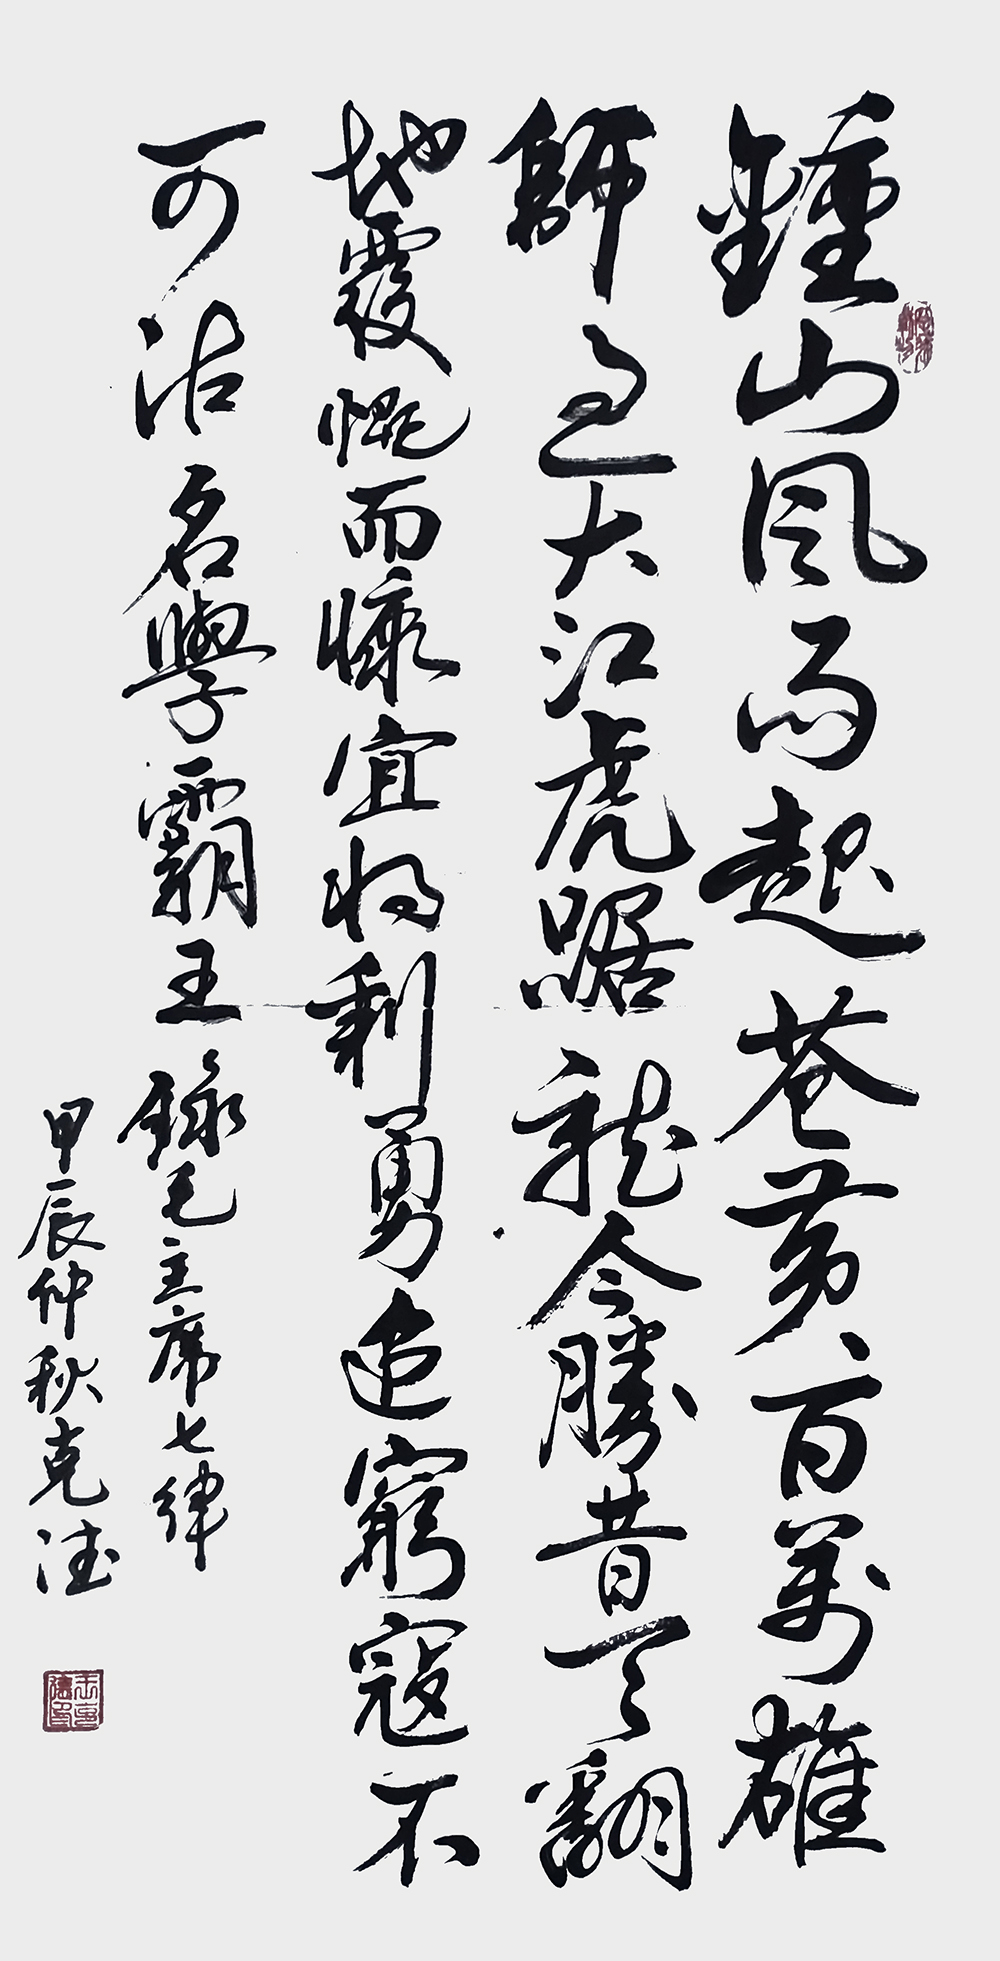 鍾山風雨起蒼黄百萬雄
師過大江虎踞龍今勝昔天翻
地覆慨而慷宜將剩勇追窮寇不
可沽名學霸王 録毛主席七律
甲辰仲秋克德